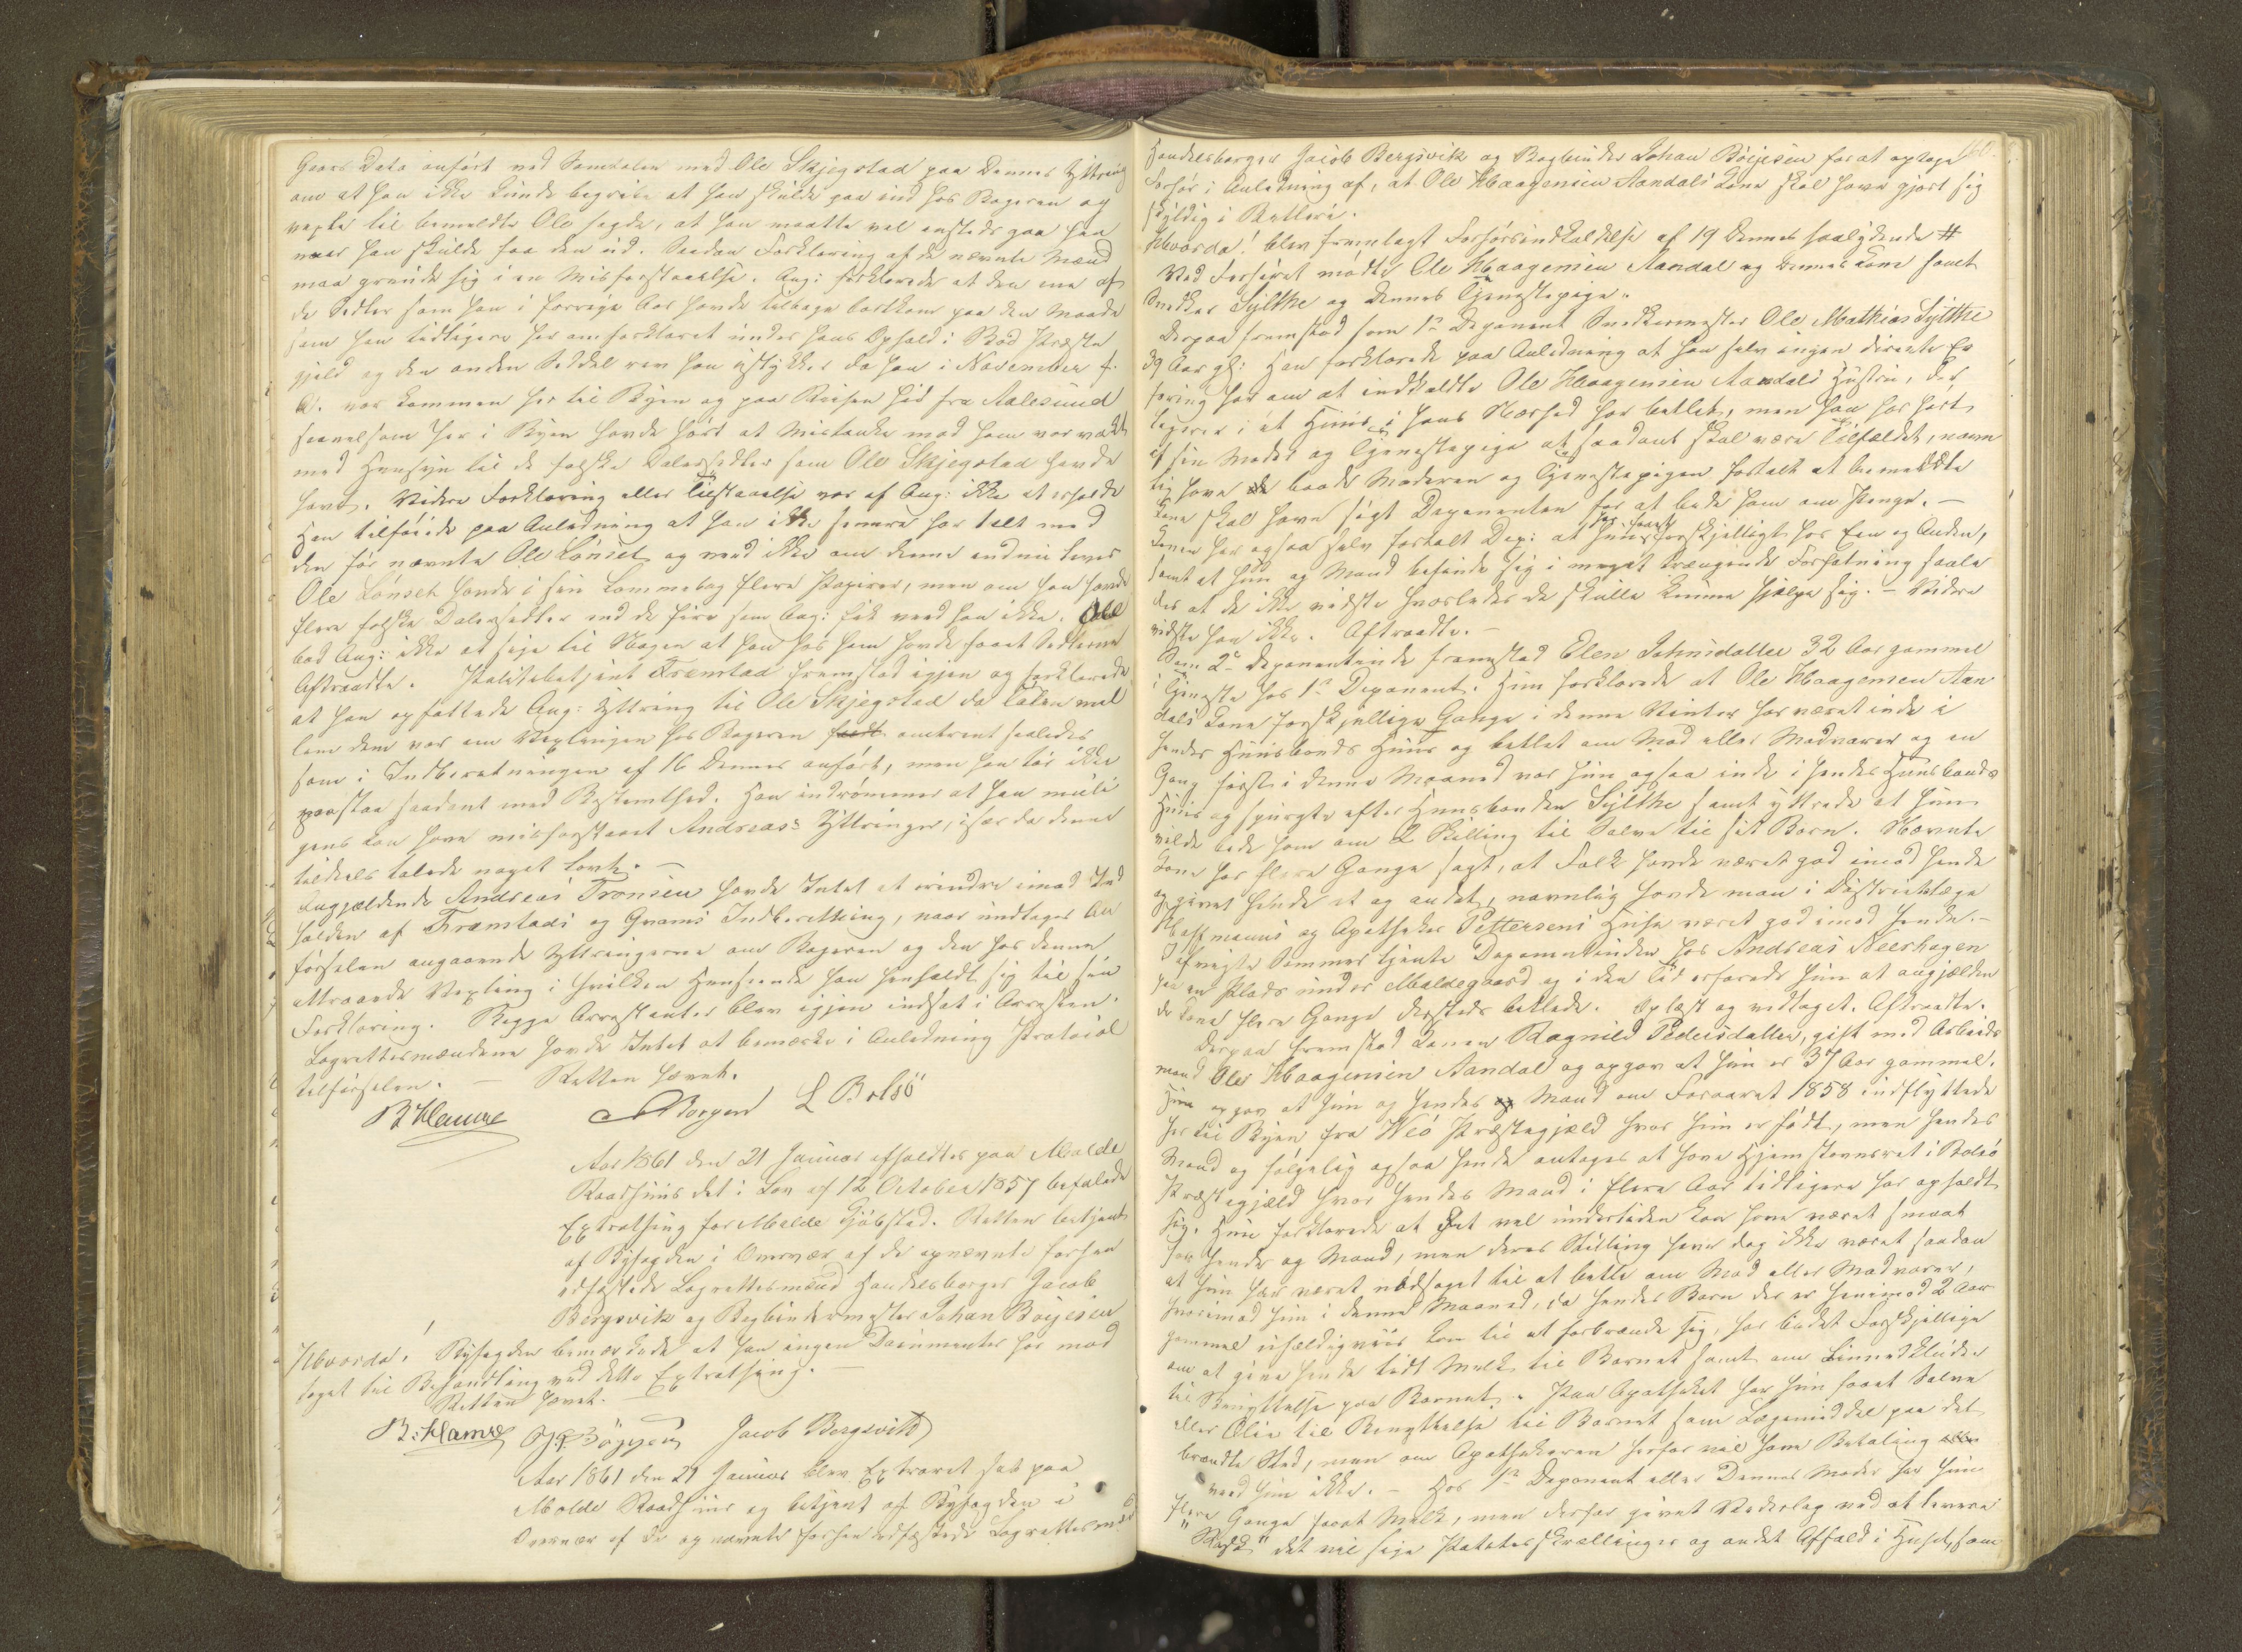 Gaars Dato anført ved Samtalen med Ole Skjegstad paa Dennes Yttring
om at han ikke kunde begribe at han skulde gaa ind hos Bageren og
vexle til bemeldte Ole sagde, at han maatte vel ensteds gaa hen
naar han skulde faa den ud. Saadan Forklaring af de nævnte Mænd
maa grunde sig i en Misforstaaelse. Ang: forklarede at den ene af
de Sedler som han i forrige Aar havde tilbage bortkom paa den Maade
som han tidligere har omforklaret under hans Ophold i Bod Præste
gjeld og den anden Seddel rev han istykker da han i November f.
A. var kommen her til Byen og paa Reisen hid fra Aalesund
saavelsom her i Byen havde hørt at Mistanke mod ham var vakt
med Hensyn til de falske Dalersedler som Ole Skjegstad havde
havt. Videre Forklaring eller Tilstaaelse var af Ang: ikke at erholde
Han tilføiede paa Anledning at han ikke senere har talt med
den før nævnte Ole Lønset og veed ikke om denne endnu lever
Ole Lønset havde i sin Lommebog flere Papirer, men om han havde
flere falske Dalersedler end de fire som Ang: fik veed han ikke. Ole
bad Ang: ikke at sige til Nogen at han hos ham havde faaet Sedlerne
Aftraadte. Politibetjent Framstad fremstod igjen og forklarede
at han opfattede Ang: Yttring til Ole Skjegstad da Talen mel
lem dem var om Vexlingen hos Bageren omtrent saaledes
som i Indberetningen af 16 Dennes anført, men han tør ikke
paastaa saadant med Bestemthed. Han indrømmer at han muli
gens kan have misforstaaet Andreas's Yttringer, især da denne
tildels talede noget lavt. —
Angjældende Andreas Tronsen havde Intet at erindre imod Ind
holden af Framstads og Gvams Indberetning, naar undtages An
førselen angaaende Yttringerne om Bageren og den hos denne
attraaede Vexling i hvilken Henseende han henholdt sig til sin
Forklaring. Begge Arrestanter blev igjen indsat i Arresten.
Lagrettesmændene havde Intet at bemærke i Anledning Protocol
tilførselen. — Retten hævet.
B Hamre Borgen L Bolsö
Aar 1861 den 21 Januar afholdtes paa Molde
Raadhuus det i Lov af 12 October 1857 befalede
Extrathing for Molde Kjøbstad. Retten betjent
af Byfogden i Overvær af de opnævnte forhen
edfæstede Lagrettesmænd Handelsborger Jacob
Bergsvik og Bogbindermester Johan Böyesen
Hvorda! Byfogden bemærkede at han ingen Documenter har mod
taget til Behandling ved dette Extrathing. —
Retten hævet. —
B: Hamre Jacob Bergsvik
Aar 1861 den 21 Januar blev Extraret sat paa
Molde Raadhuus og betjent af Byfogden i
Overvær af de opnævnte forhen edfæstede Lagrettesmænd
Handelsborger Jacob Bergsvik og Bogbinder Johan Böyesen for at optage
Forhør i Anledning af, at Ole Haagensen Aandals Kone skal have gjort sig
skyldig i Betleri.
Hvorda! blev fremlagt Forhørsindkaldelse af 19 Dennes saalydende #
Ved Forhøret mødte Ole Haagensen Aandal og dennes Kone samt
Snedker Sylthe og dennes Tjenestepige.
Derpaa fremstod som 1ste Deponent Snedkermester Ole Mathias Sylthe
39 Aar gl: Han forklarede paa Anledning at han selv ingen directe Er
faring har om at indkaldte Ole Haagensen Aandals Hustru, der
logerer i et Huus i hans Nærhed har betlet, men han har hørt
af sin Moder og Tjenestepige at saadant skal være Tilfældet, navn
lig have baade Moderen og Tjenestepigen fortalt at bemeldte
Kone skal have søgt Deponenten for at bede ham om Penge. —
Konen har ogsaa selv fortalt Dep: at hun har faaet forskjelligt hos Een og Anden,
samt at hun og Mand befinde sig i meget trængende Forfatning saale
des at de ikke vidste hvorledes de skulle kunne hjælpe sig. — Videre
vidste han ikke. Aftraadte. —
Som 2den Deponentinde fremstod Elen Johnsdatter 32 Aar gammel
i Tjeneste hos 1ste Deponent. Hun forklarede at Ole Haagensen Aan
dals Kone forskjellige Gange i denne Vinter har været inde i
hendes Huusbonds Huus og betlet om Mad eller Madvarer og en
Gang først i denne Maaned var hun ogsaa inde i hendes Huusbonds
Huus og spurgte efter Huusbonden Sylthe samt yttrede at hun
vilde bede ham om 2 Skilling til Salve til sit Barn. Nævnte
Kone har flere Gange sagt, at Folk havde været god imod hende
og givet hende et og andet, navnlig havde man i Districtslæge
Hoffmanns og Apotheker Pettersens Huse været god imod hende. —
Afvigte Sommer tjente Deponentinden hos Andreas Neerhagen
paa en Plads under Moldegaard og i den Tid erfarede hun at angjælden
de Kone flere Gange dersteds betlede. Oplæst og vedtaget. Aftraadte.
Derpaa fremstod Konen Ragnild Pedersdatter, gift med Arbeids
mand Ole Haagensen Aandal og opgav at hun er 37 Aar gammel.
Hun opgav at hun og hendes Mand om Foraaret 1858 indflyttede
her til Byen fra Veö Præstegjæld hvor hun er født, men hendes
Mand og følgelig ogsaa hende antages at have Hjemstavnsret i Bolsö
Præstegjæld hvor hendes Mand i flere Aar tidligere har opholdt
sig. Hun forklarede at det vel undertiden kan have været smaat
for hende og Mand, men deres Stilling have dog ikke været saadan
at hun har været nödsaget til at betle om Mad eller Madvarer,
hvorimod hun i denne Maaned, da hendes Barn der er henimod 2 Aar
gammel uheldigviis kom til at forbrænde sig, har bedet Forskjellige
om at give hende lidt Melk til Barnet samt om Linnedklude
til Benyttelse paa Barnet. Paa Apotheket har hun faaet Salve
eller Olie til Benyttelse til Barnet som Lægemiddel paa det
brændte Sted, men om Apothekeren herfor vil have Betaling
veed hun ikke. — Hos 1ste Deponent eller Dennes Moder har hun
flere Gange faaet Melk, men derfor givet Vederlag ved at levere
det vil sige Potetesskrællinger og andet Affald i Huset, som